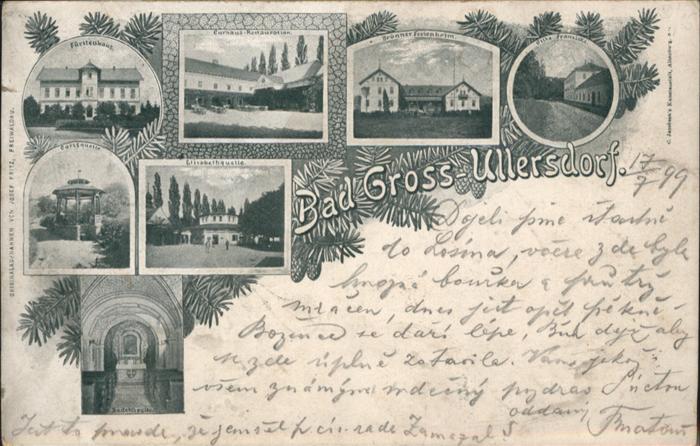 Fürstenhaus.
Curhaus-Restauration.
Brünner Ferienheim.
Villa Franziska
Cursquelle.
Elisabethquelle.
Badekapelle.
ORIGINALAUFNAHMEN VON JOSEF FRITZ, FREIWALDAU.
C. Jacobsen's Kunstanstalt,
Bad Gross-Ullersdorf. 17/7 99
Dojeli jsme šťastně
do Losína, včera zde byla
hrozná bouřka a průtrž
mračen, dnes jest opět pěkně.
Božence se daří lépe, Bůh dejž aby
se zde úplně zotavila. Vám jakož
všem známým srdečný pozdrav
oddaný
Jest to pravda, že jemst p. cís. rade Zamazal